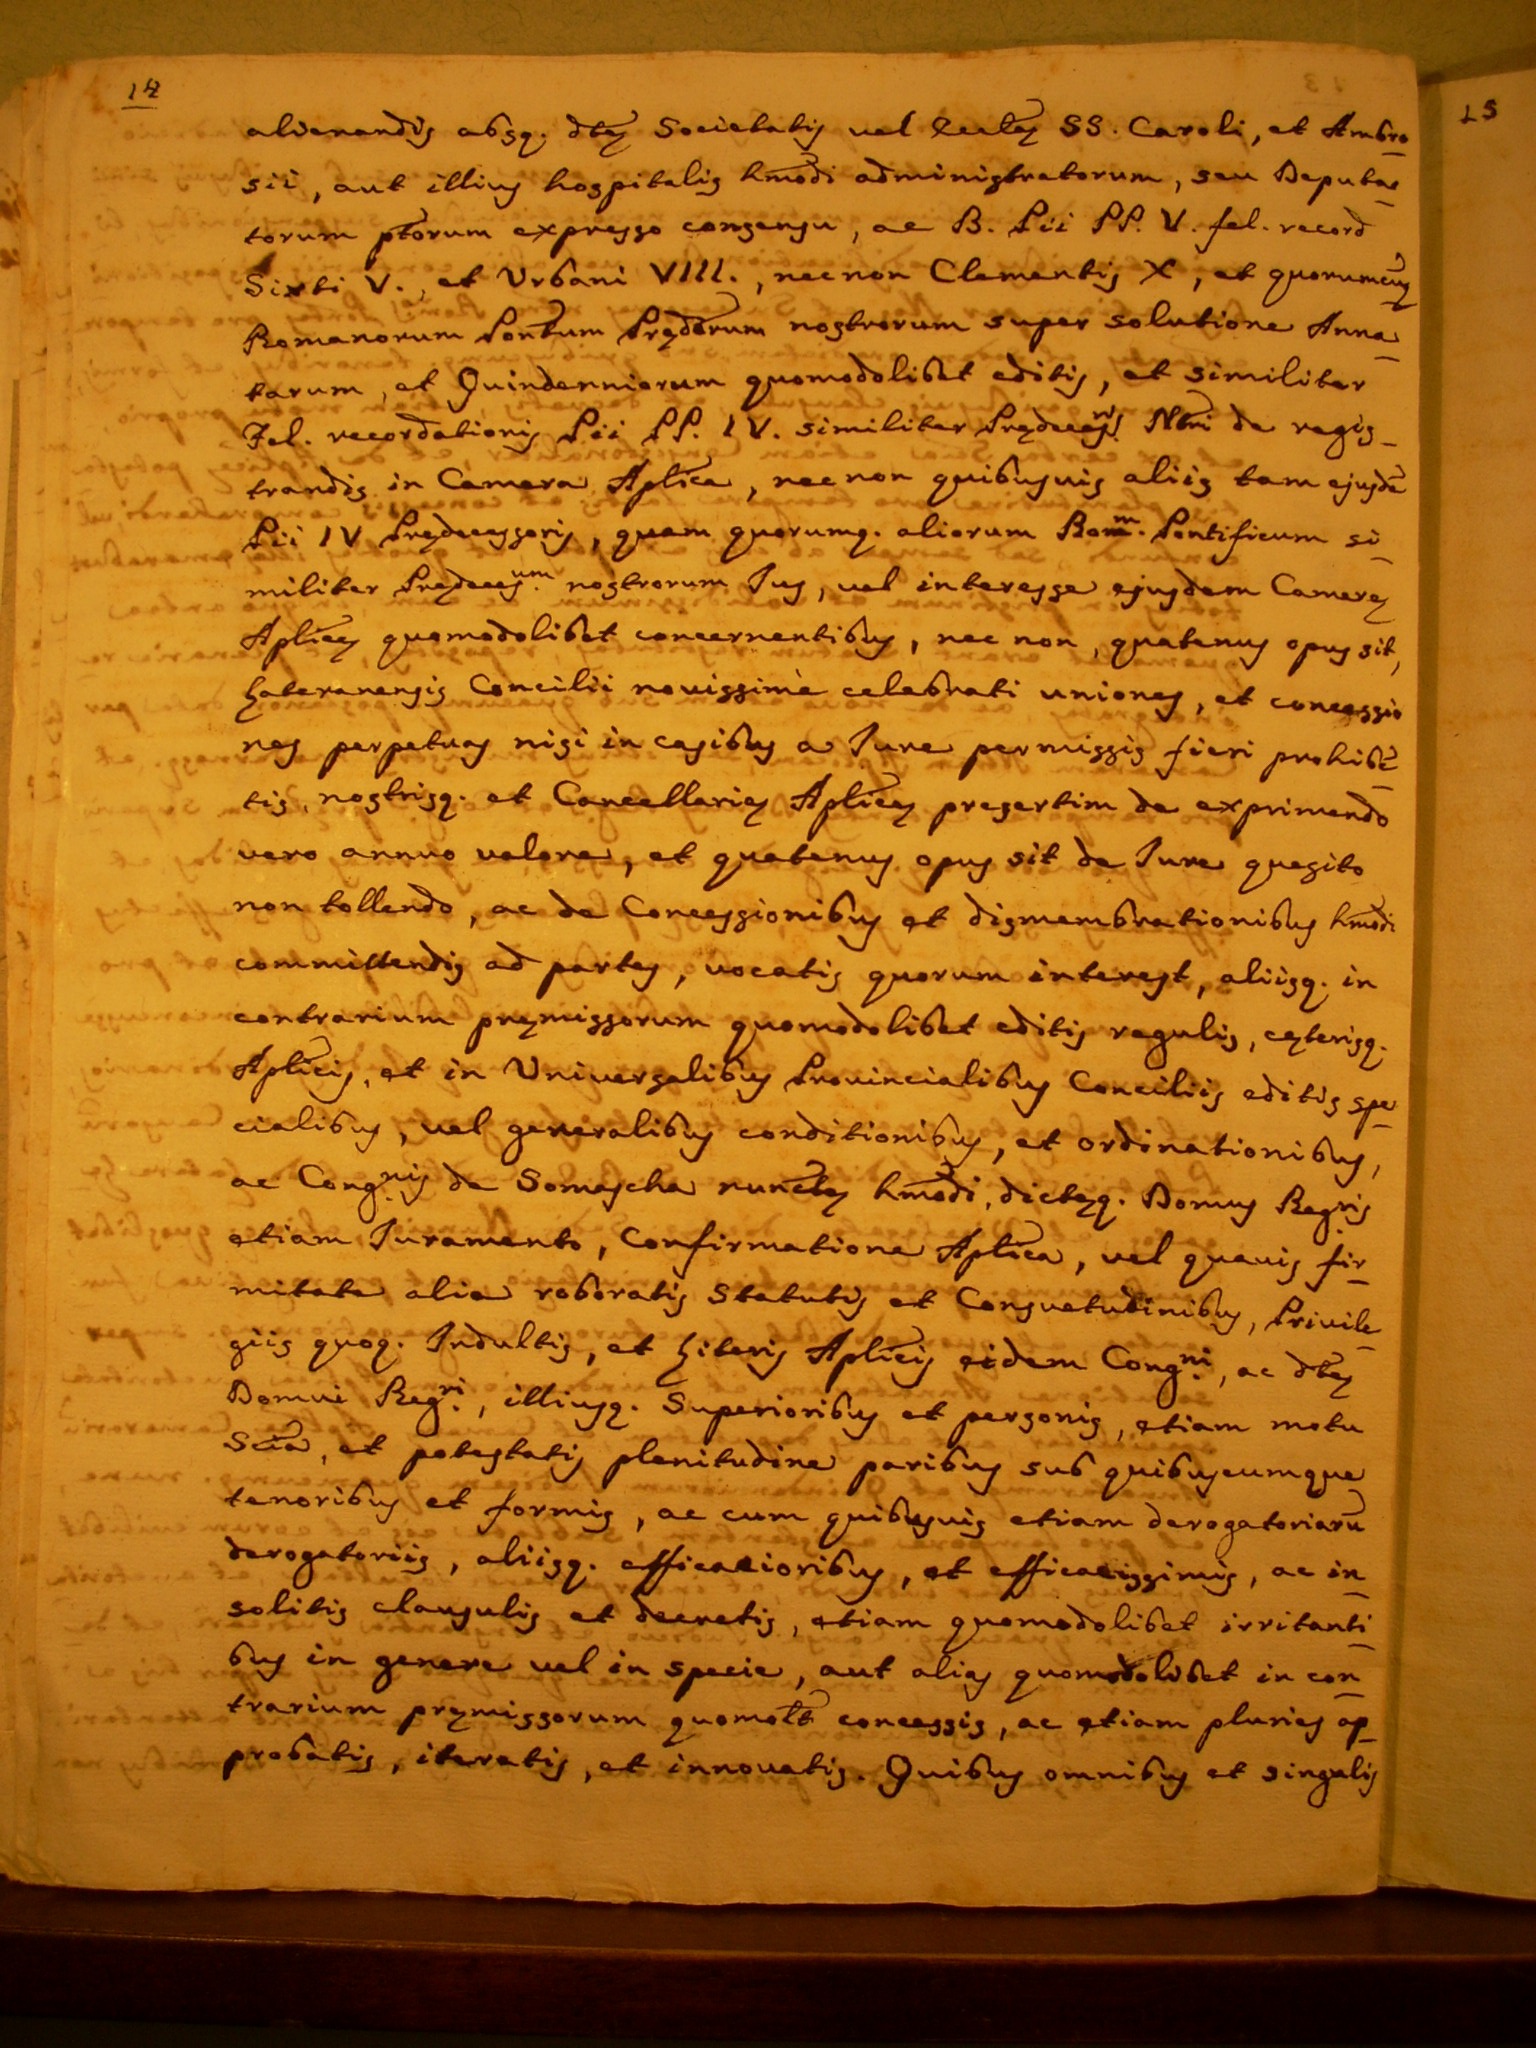 14
alienandis absq. dtę Societatis vel Ecclę SS. Caroli, et Ambro
sii, aut illius hospitalis hmōdi administratorum, seu Deputa
torum ptōrum expresso consensu, ac B. Pii PP. V. fel. record
Sixti V., et Urbani VIII., necnon Clementis X, et quorumcūq
Romanorum Pontūm Prędērum nostrorum super solutione Anna
tarum, et Quindenniorum quomodolibet editis, et similiter
Fel. recordationis Pii PP. IV. similiter Prędecess.ris Ntri de regis
trandis in Camera Aplica, necnon quibusvis aliis tam ejusdē
Pii IV Prędecessoris, quam quorumq. aliorum Rom.m Pontificum si
militer Prędecess.um nostrorum Jus, vel interesse ejusdem Camerę
Aplicę quomodolibet concernentibus, nec non, quatenus opus sit,
Lateranensis Concilii novissimè celebrati uniones, et concessio
nes perpetuas nisi in casibus a Jure permissis fieri prohibē
tis, nostrisq. et Cancellarię Aplicę presertim de exprimendo
vero annuo valore, et quatenus opus sit de Jure quesito
non tollendo, ac de Concessionibus et dismembrationibus hmōdi
committendis ad partes, vocatis quorum interest, aliisq. in
contrarium pręmissorum quomodolibet editis regulis, cęterisq.
Aplicis, et in Universalibus Provincialibus Conciliis editis spe
cialibus, vel generalibus conditionibus, et ordinationibus,
ac Cong.nis de Somascha nunctę hmōdi, dictęq. Domus Reg.ris
etiam Juramento, Confirmatione Aplica, vel quavis fir
mitate alia roboratis Statutis et Consuetudinibus, Privile
giis quoq. Indultis, et Literis Aplicis eidem Cong.ni, ac dtę
Domui Reg.ri, illiusq. Superioribus et personis, etiam motu
Scia, et potestatis plenitudine paribus sub quibuscumque
tenoribus et formis, ac cum quibusvis etiam derogatoriarū
derogatoriis, aliisq. efficacioribus, et efficacissimis, ac in
solitis clausulis et decretis, etiam quomodolibet irritanti
bus in genere vel in specie, aut alias quomodolibet in con
trarium pręmissorum quomolt concessis, ac etiam pluries ap
probatis, iteratis, et innovatis. Quibus omnibus et singulis
15